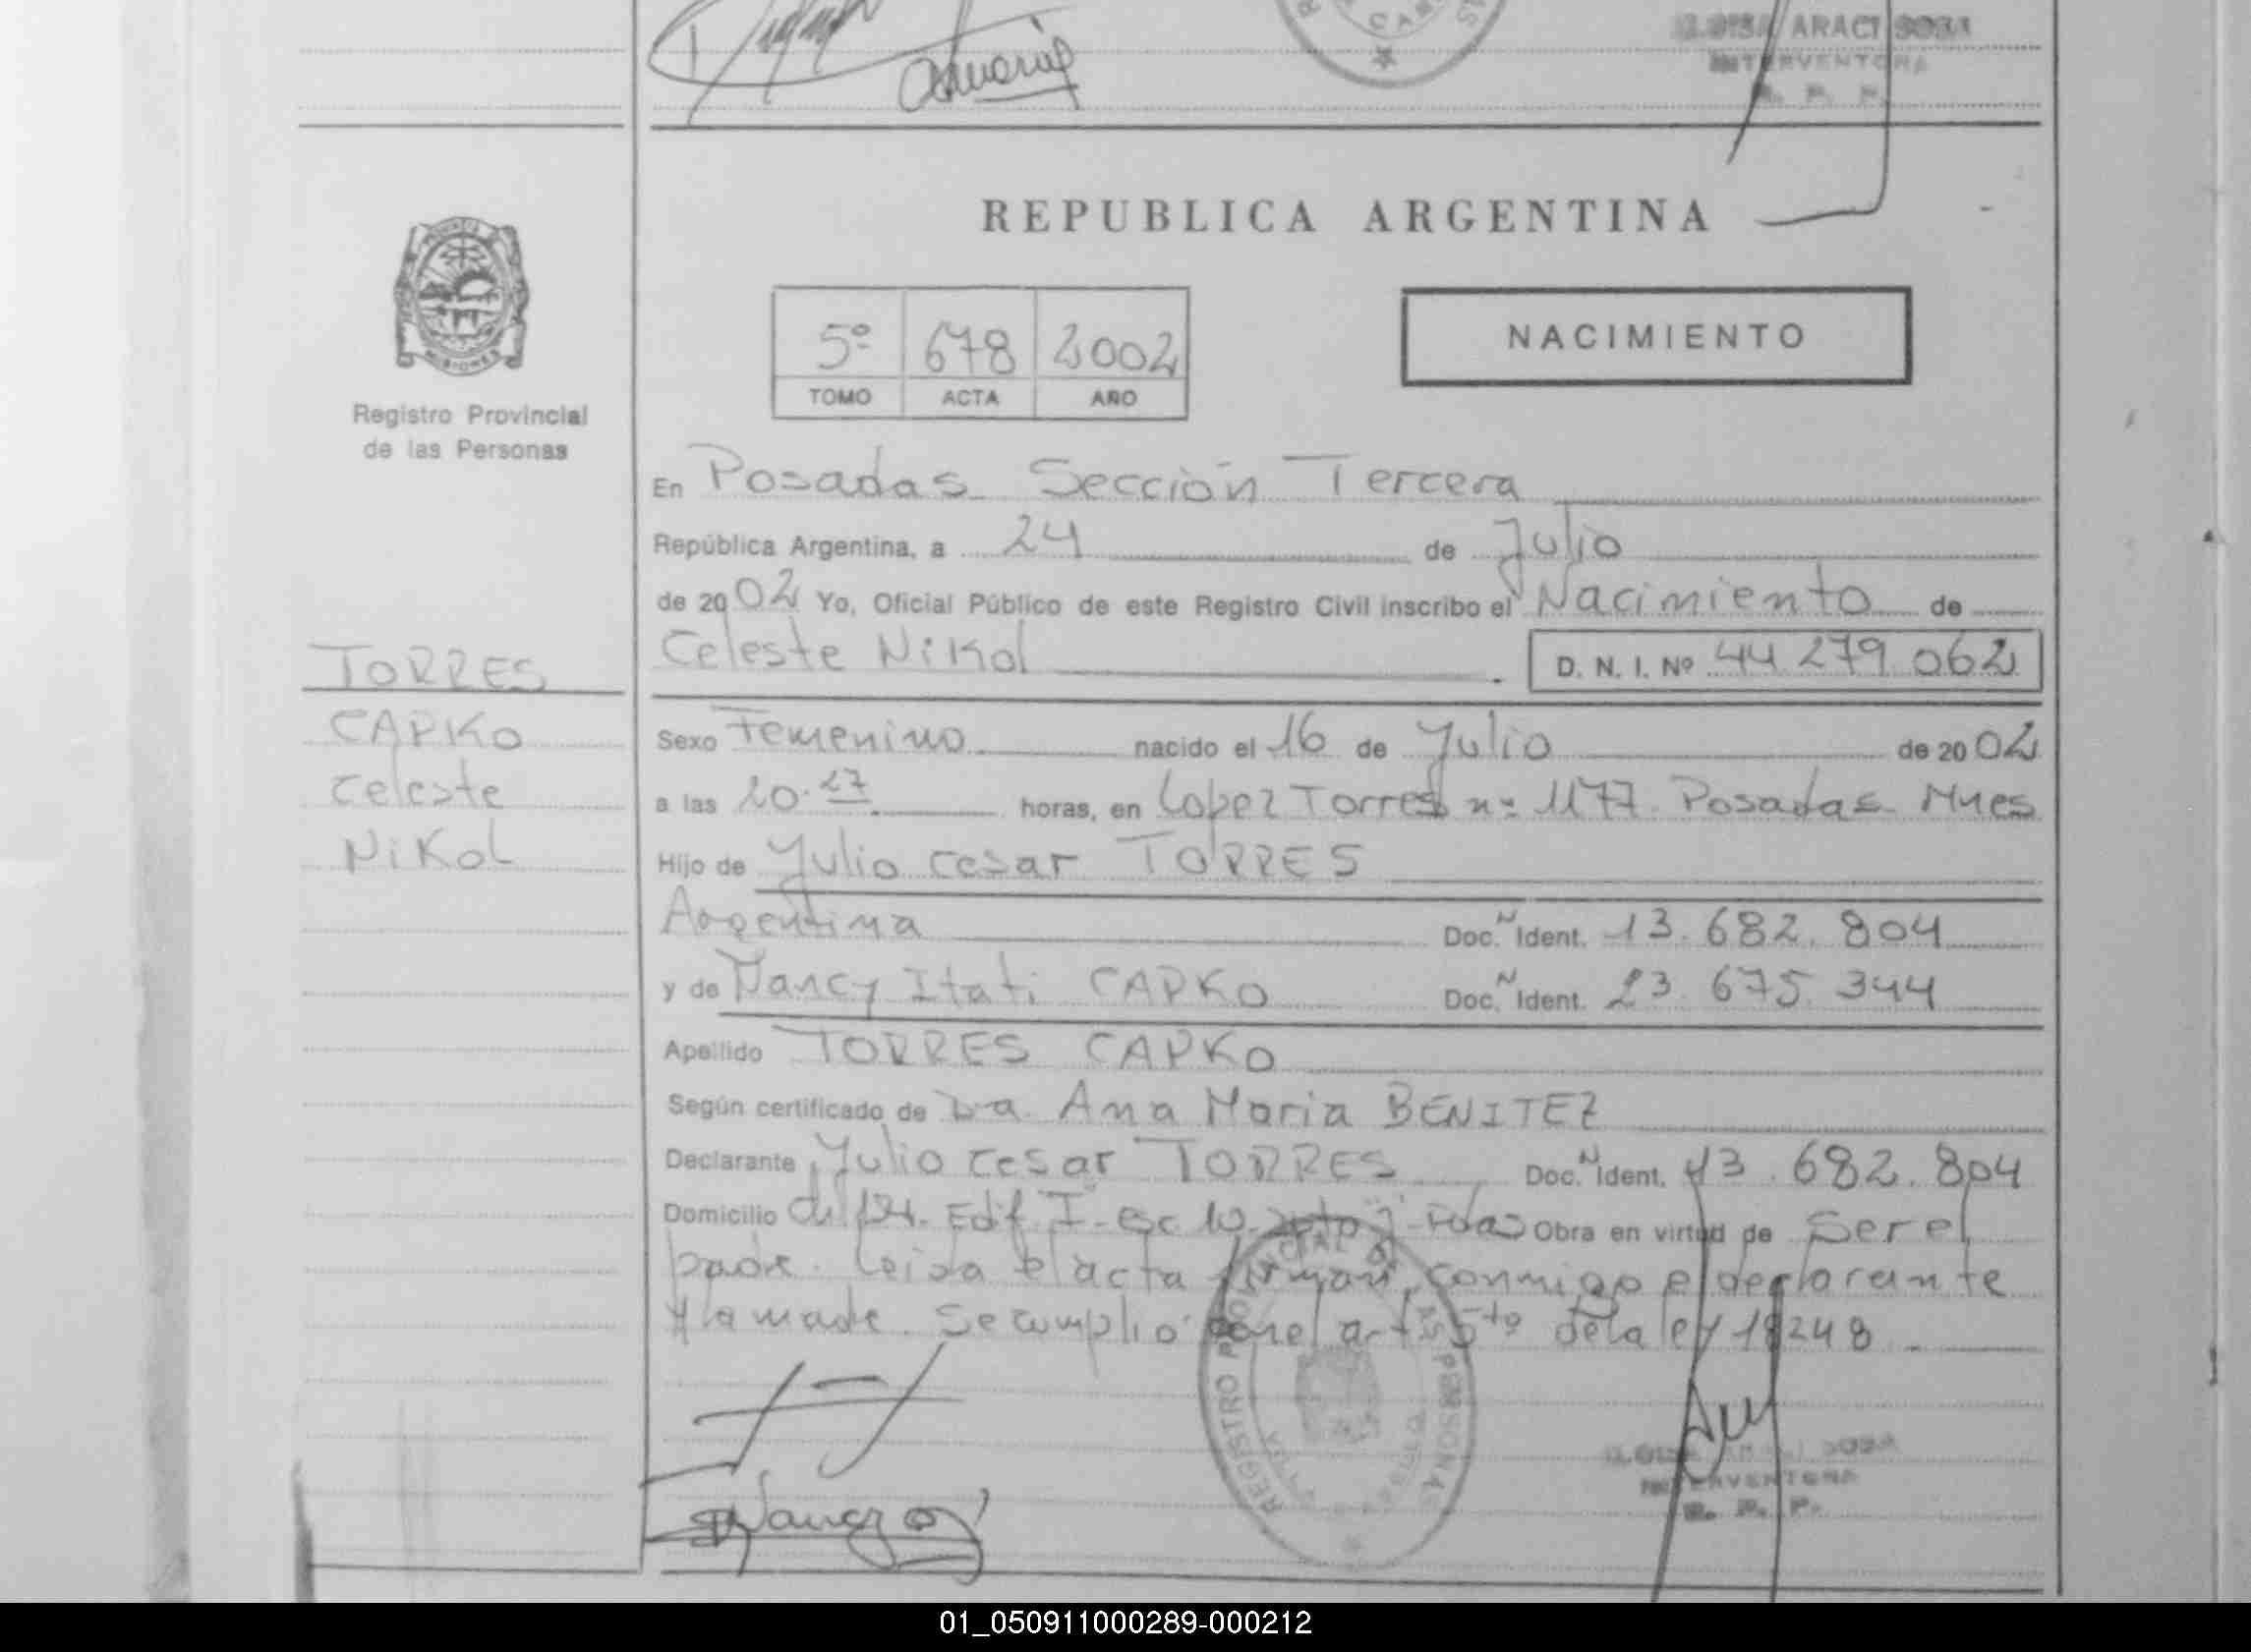 ARACI SOSA
INTERVENTORA
R. P. P.
REPUBLICA ARGENTINA
5º 678 2002
TOMO ACTA AÑO
NACIMIENTO
MISIONES
Registro Provincial
de las Personas
En Posadas Sección Tercera
República Argentina, a 24 de Julio
de 2002 Yo, Oficial Público de este Registro Civil inscribo el Nacimiento de
Celeste Nikol D. N. I. Nº 44 279 062
TORRES
CAPKO
Celeste
Nikol
Sexo Femenino nacido el 16 de Julio de 2002
a las 20.27 horas, en Lopez Torres nº 1177 Posadas Mnes
Hijo de Julio Cesar TORRES
Argentina Doc. N Ident. 13.682.804
y de Nancy Itati CAPKO Doc. N Ident. 23.675.344
Apellido TORRES CAPKO
Según certificado de Dra Ana Maria BENITEZ
Declarante Julio Cesar TORRES Doc. N Ident. 13.682.804
Domicilio Edif. I - esc 10 Pdas Obra en virtud de Ser el
padre. Leida el acta firman conmigo el declarante
y la madre. Se cumplio con el art 5to de la ley 18248
REGISTRO PROVINCIAL DE LAS PERSONAS
SOSA
INTERVENTORA
R. P. P.
01_050911000289-000212